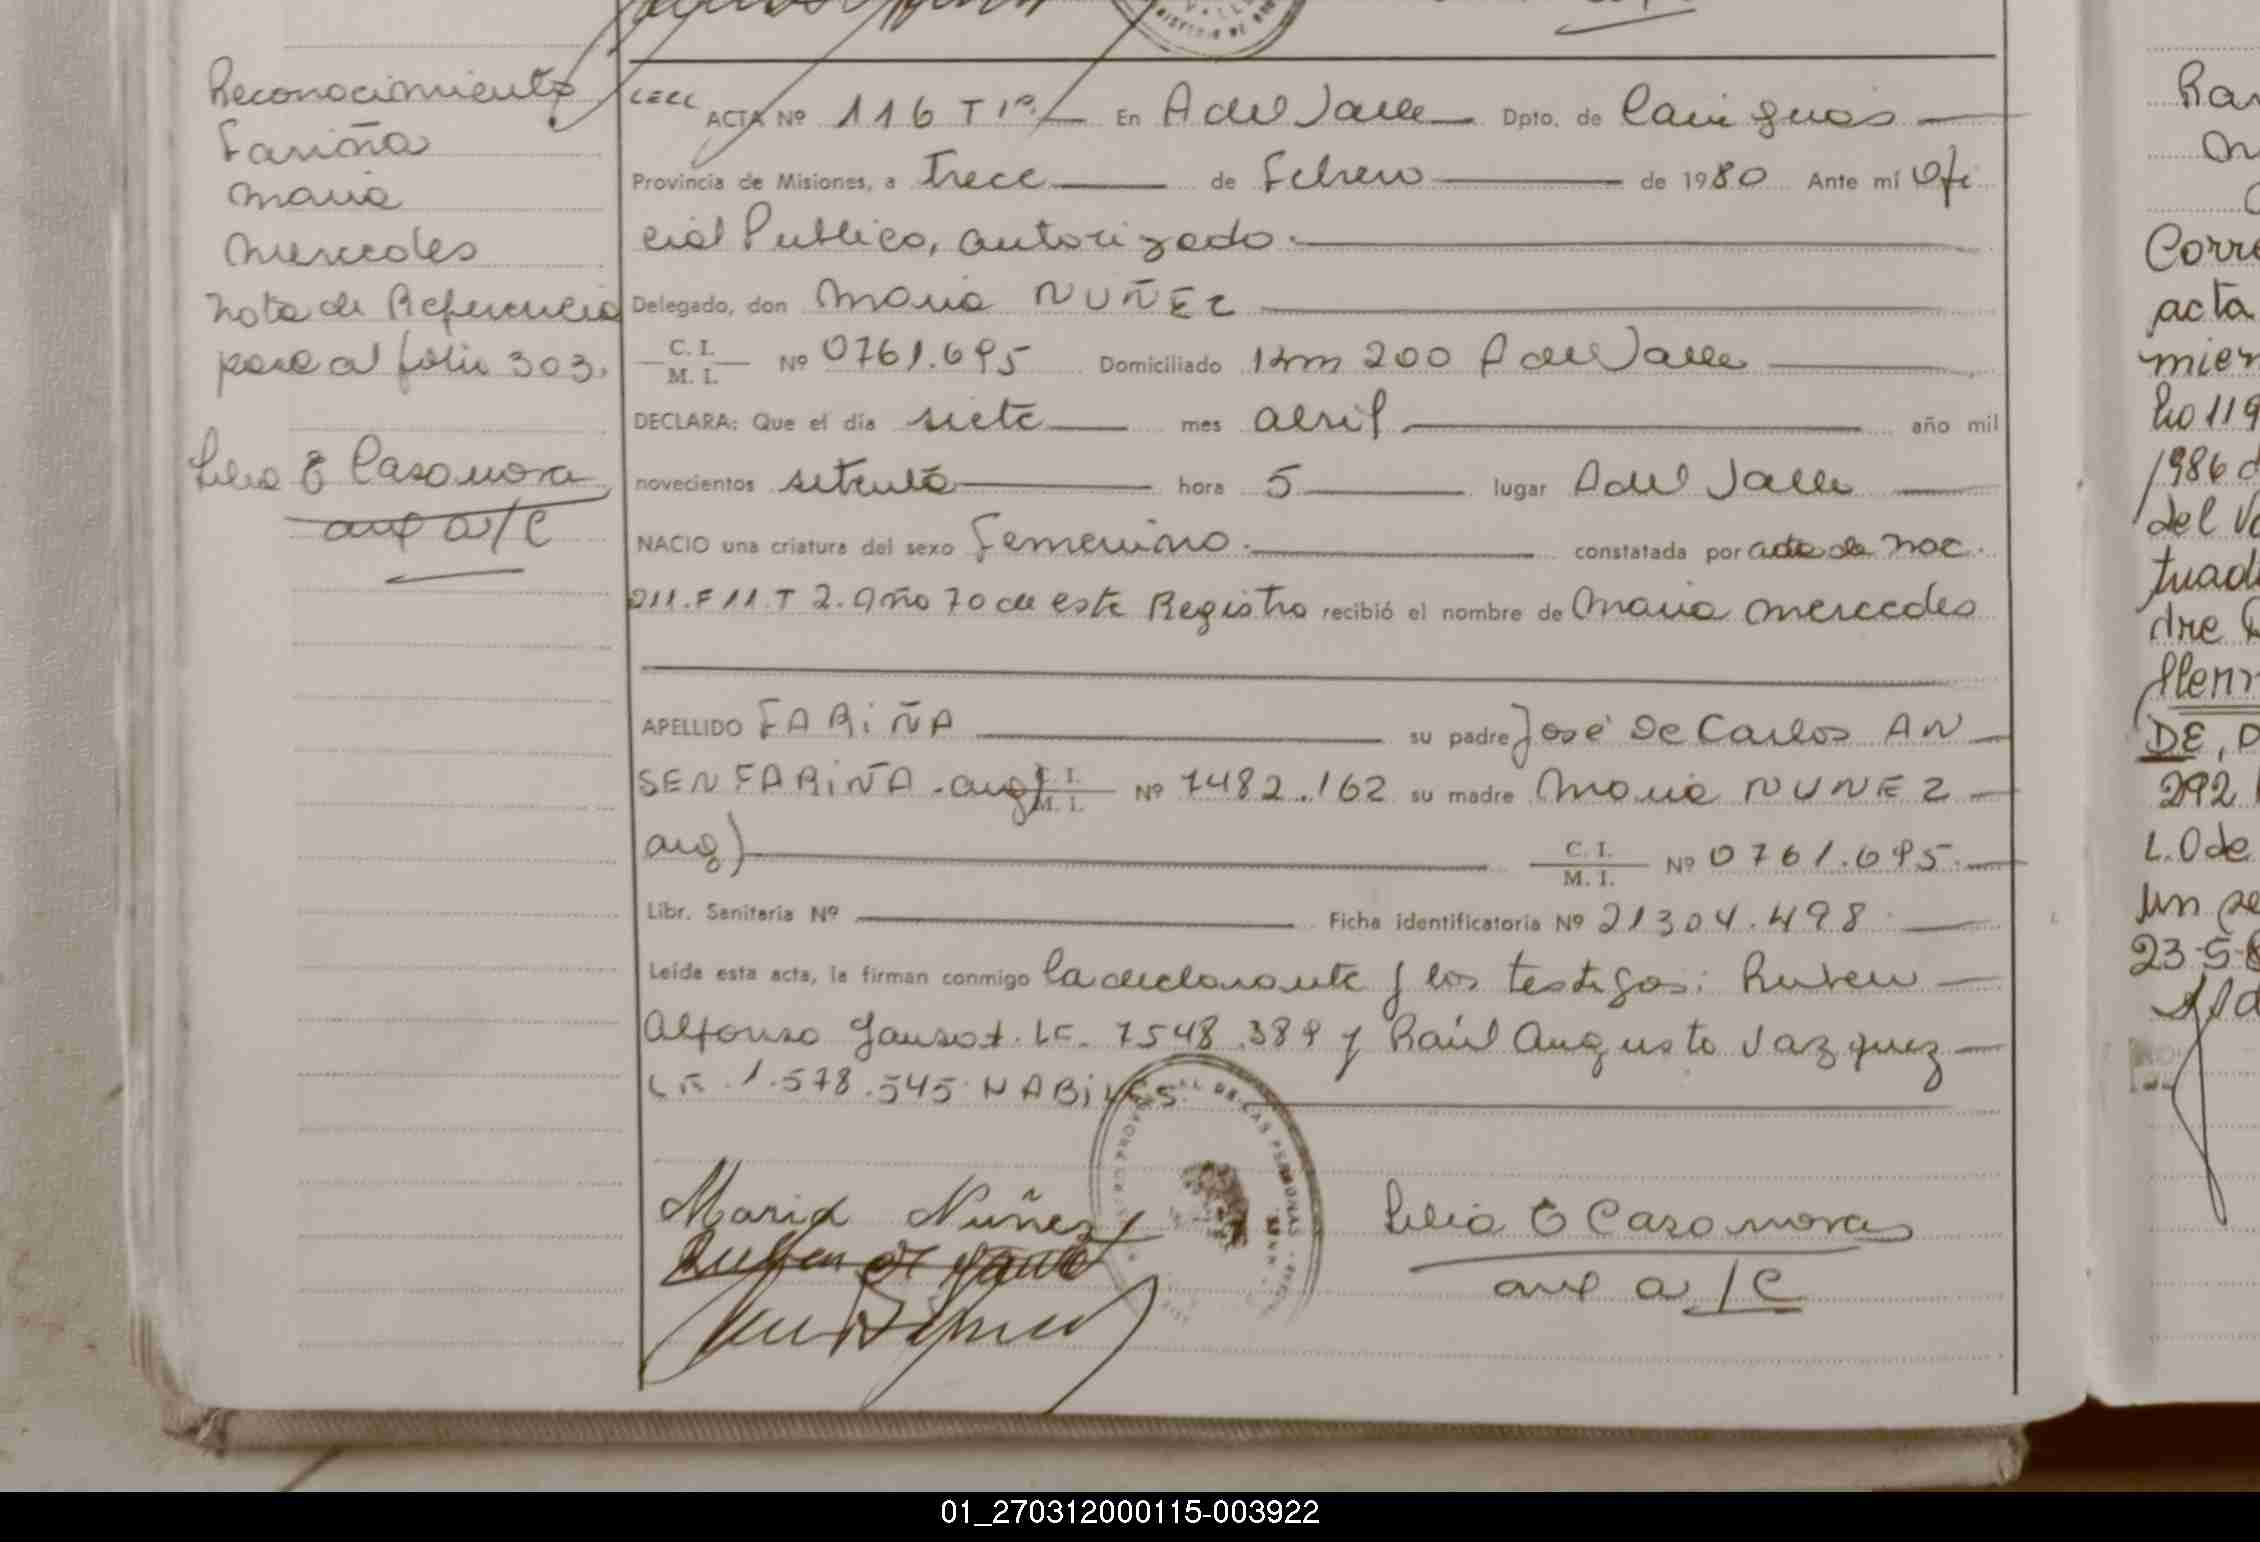 Reconocimiento
Fariña
Maria
Mercedes
Nota de Referencia
pase al folio 303.
Lilia E Casanova
aux a/C
ACTA Nº 116 T 1º. En A del Valle Dpto. de Cainguas
Provincia de Misiones, a trece de Febrero de 1980 Ante mí Ofi
cial Publico, autorizado.
Delegado, don Maria NUÑEZ
C. I.
M. I. Nº 0761.695 Domiciliado Km 200 A del Valle
DECLARA: Que el día siete mes abril año mil
novecientos setenta hora 5 lugar A del Valle
NACIO una criatura del sexo Femenino. constatada por acta de nac.
211. F 11. T 2. Año 70 de este Registro recibió el nombre de Maria Mercedes
APELLIDO FARIÑA su padre José De Carlos AN
SEN FARIÑA. arg) C. I. M. I. Nº 7482.162 su madre Maria NUNEZ
arg) C. I. M. I. Nº 0761.695.
Libr. Sanitaria Nº Ficha identificatoria Nº 21304.498
Leída esta acta, la firman conmigo la declarante y los testigos: Ruben
Alfonso LE. 7548.389 y Raúl Augusto Vazquez
LE. 1.578.545 HABILES.
Maria Nuñez
Lilia E Casanova
aux a/C
Corre
acta
1986
del V
dre
DE,
292
L.O de
un se
23-5-8
01_270312000115-003922